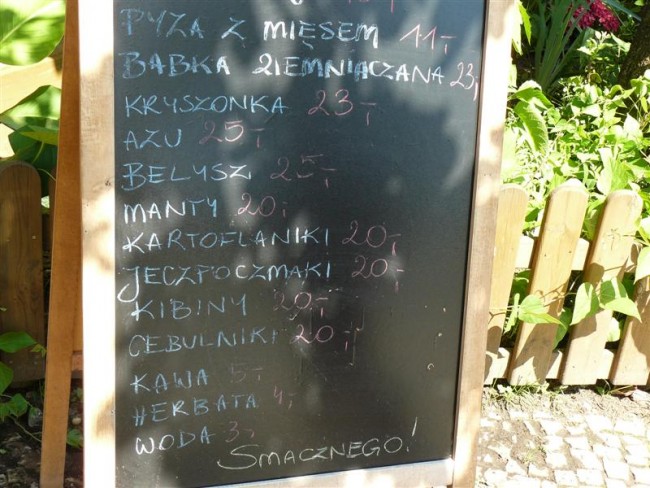 PYZA Z MIĘSEM 11,-
BABKA ZIEMNIACZANA 23,-
KRYSZONKA 23,-
AZU 25,-
BELYSZ 25,-
MANTY 20,-
KARTOFLANIKI 20,-
JECZPOCZMAKI 20,-
KIBINY 20,-
CEBULNIKI 20,-
KAWA 5,-
HERBATA 4,-
WODA 3,-
SMACZNEGO!